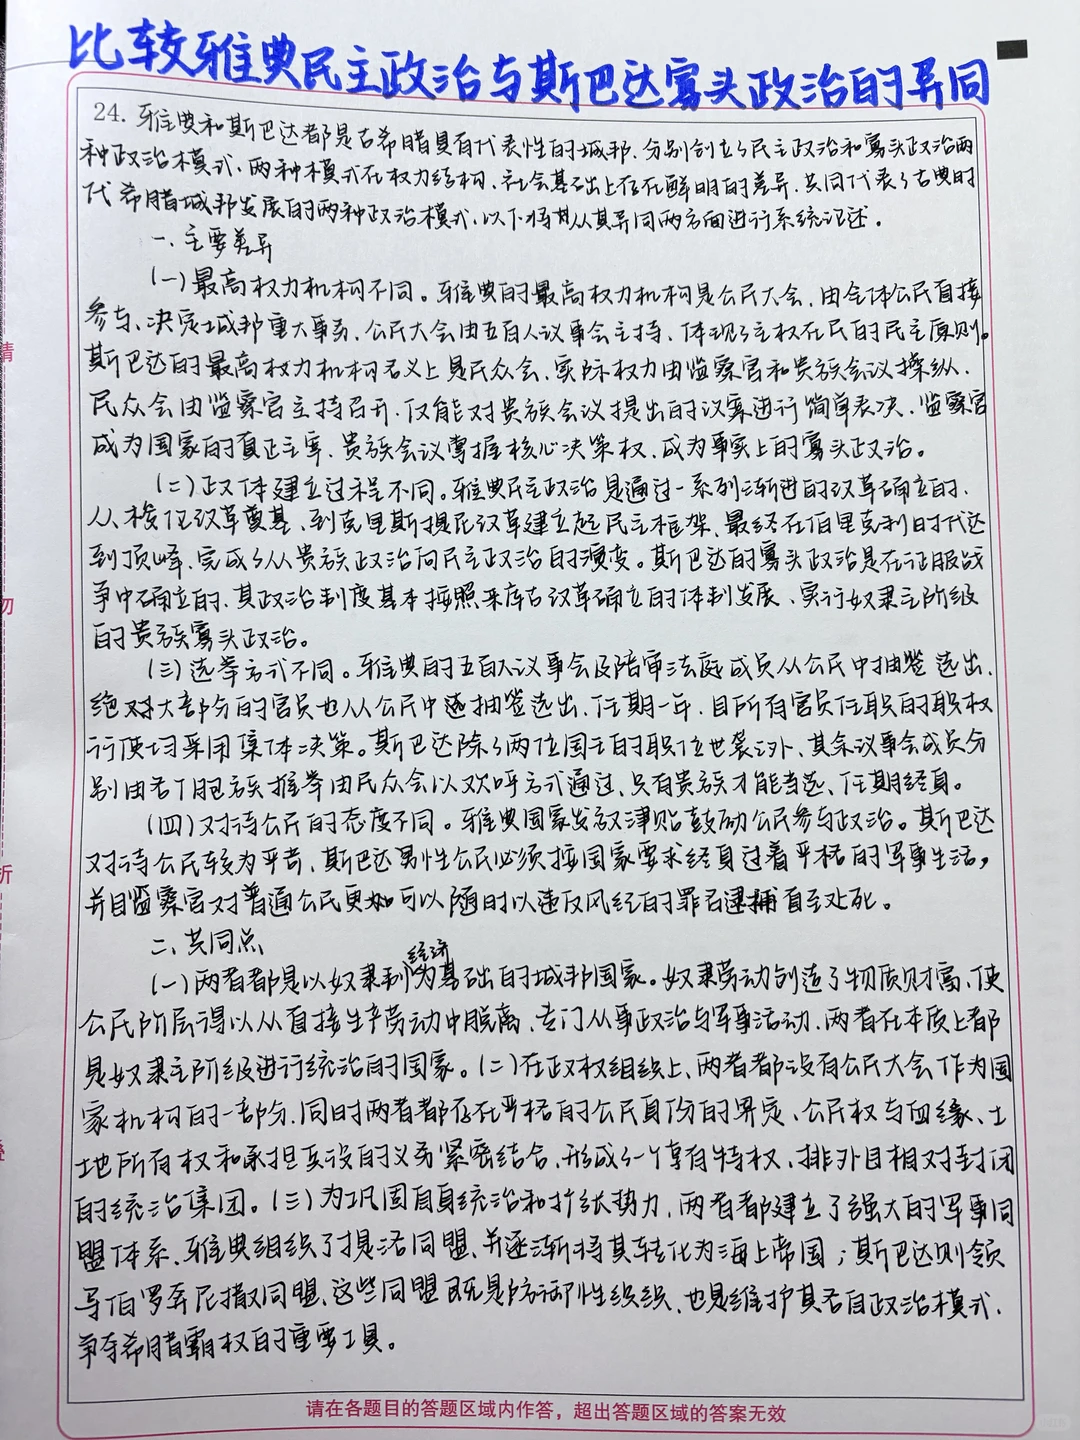 比较雅典民主政治与斯巴达寡头政治的异同
24. 雅典和斯巴达都是古希腊具有代表性的城邦,分别创立了民主政治和寡头政治两
种政治模式,两种模式在权力结构、社会基础上存在鲜明的差异,共同代表了古典时
代希腊城邦发展的两种政治模式,以下将其从其异同两方面进行系统论述。
一、主要差异
(一)最高权力机构不同。雅典的最高权力机构是公民大会,由全体公民直接
参与、决定城邦重大事务,公民大会由五百人议事会主持、体现了主权在民的民主原则。
斯巴达的最高权力机构名义上是民众会,实际权力由监察官和贵族会议操纵,
民众会由监察官主持召开,仅能对贵族会议提出的议案进行简单表决,监察官
成为国家的真正主宰,贵族会议掌握核心决策权,成为事实上的寡头政治。
(二)政体建立过程不同。雅典民主政治是通过一系列渐进的改革确立的,
从梭伦改革奠基,到克里斯提尼改革建立起民主框架,最终在伯里克利时代达
到顶峰,完成了从贵族政治向民主政治的演变。斯巴达的寡头政治是在征服战
争中确立的,其政治制度基本按照来库古改革确立的体制发展、实行奴隶主阶级
的贵族寡头政治。
(三)选举方式不同。雅典的五百人议事会及陪审法庭成员从公民中抽签选出,
绝对大部分的官员也从公民中通抽签选出,任期一年,且所有官员任职的职权
行使均采用集体决策。斯巴达除了两位国王的职位世袭外,其余议事会成员分
别由若丁胞族推举由民众会以欢呼方式通过,只有贵族才能当选、任期终身。
(四)对待公民的态度不同。雅典国家发放津贴鼓励公民参与政治。斯巴达
对待公民较为平苛,斯巴达男性公民必须按国家要求终身过着严格的军事生活,
并且监察官对普通公民更如可以随时以违反风纪的罪名逮捕直至处死。
二、共同点
(一)两者都是以奴隶制经济为基础的城邦国家。奴隶劳动创造了物质财富,使
公民阶层得以从直接生产劳动中脱离,专门从事政治与军事活动,两者在本质上都
是奴隶主阶级进行统治的国家。(二)在政权组织上,两者都设有公民大会作为国
家机构的一部分,同时两者都存在严格的公民身份的界定、公民权与血缘、土
地所有权和承担兵役的义务紧密结合,形成了一个享有特权、排外且相对封闭
的统治集团。(三)为巩固自身统治和扩张势力,两者都建立了强大的军事同
盟体系,雅典组织了提洛同盟、并逐渐将其转化为海上帝国;斯巴达则领
导伯罗奔尼撒同盟、这些同盟既是防御性组织,也是维护其各自政治模式、
争夺希腊霸权的重要工具。
请在各题目的答题区域内作答，超出答题区域的答案无效